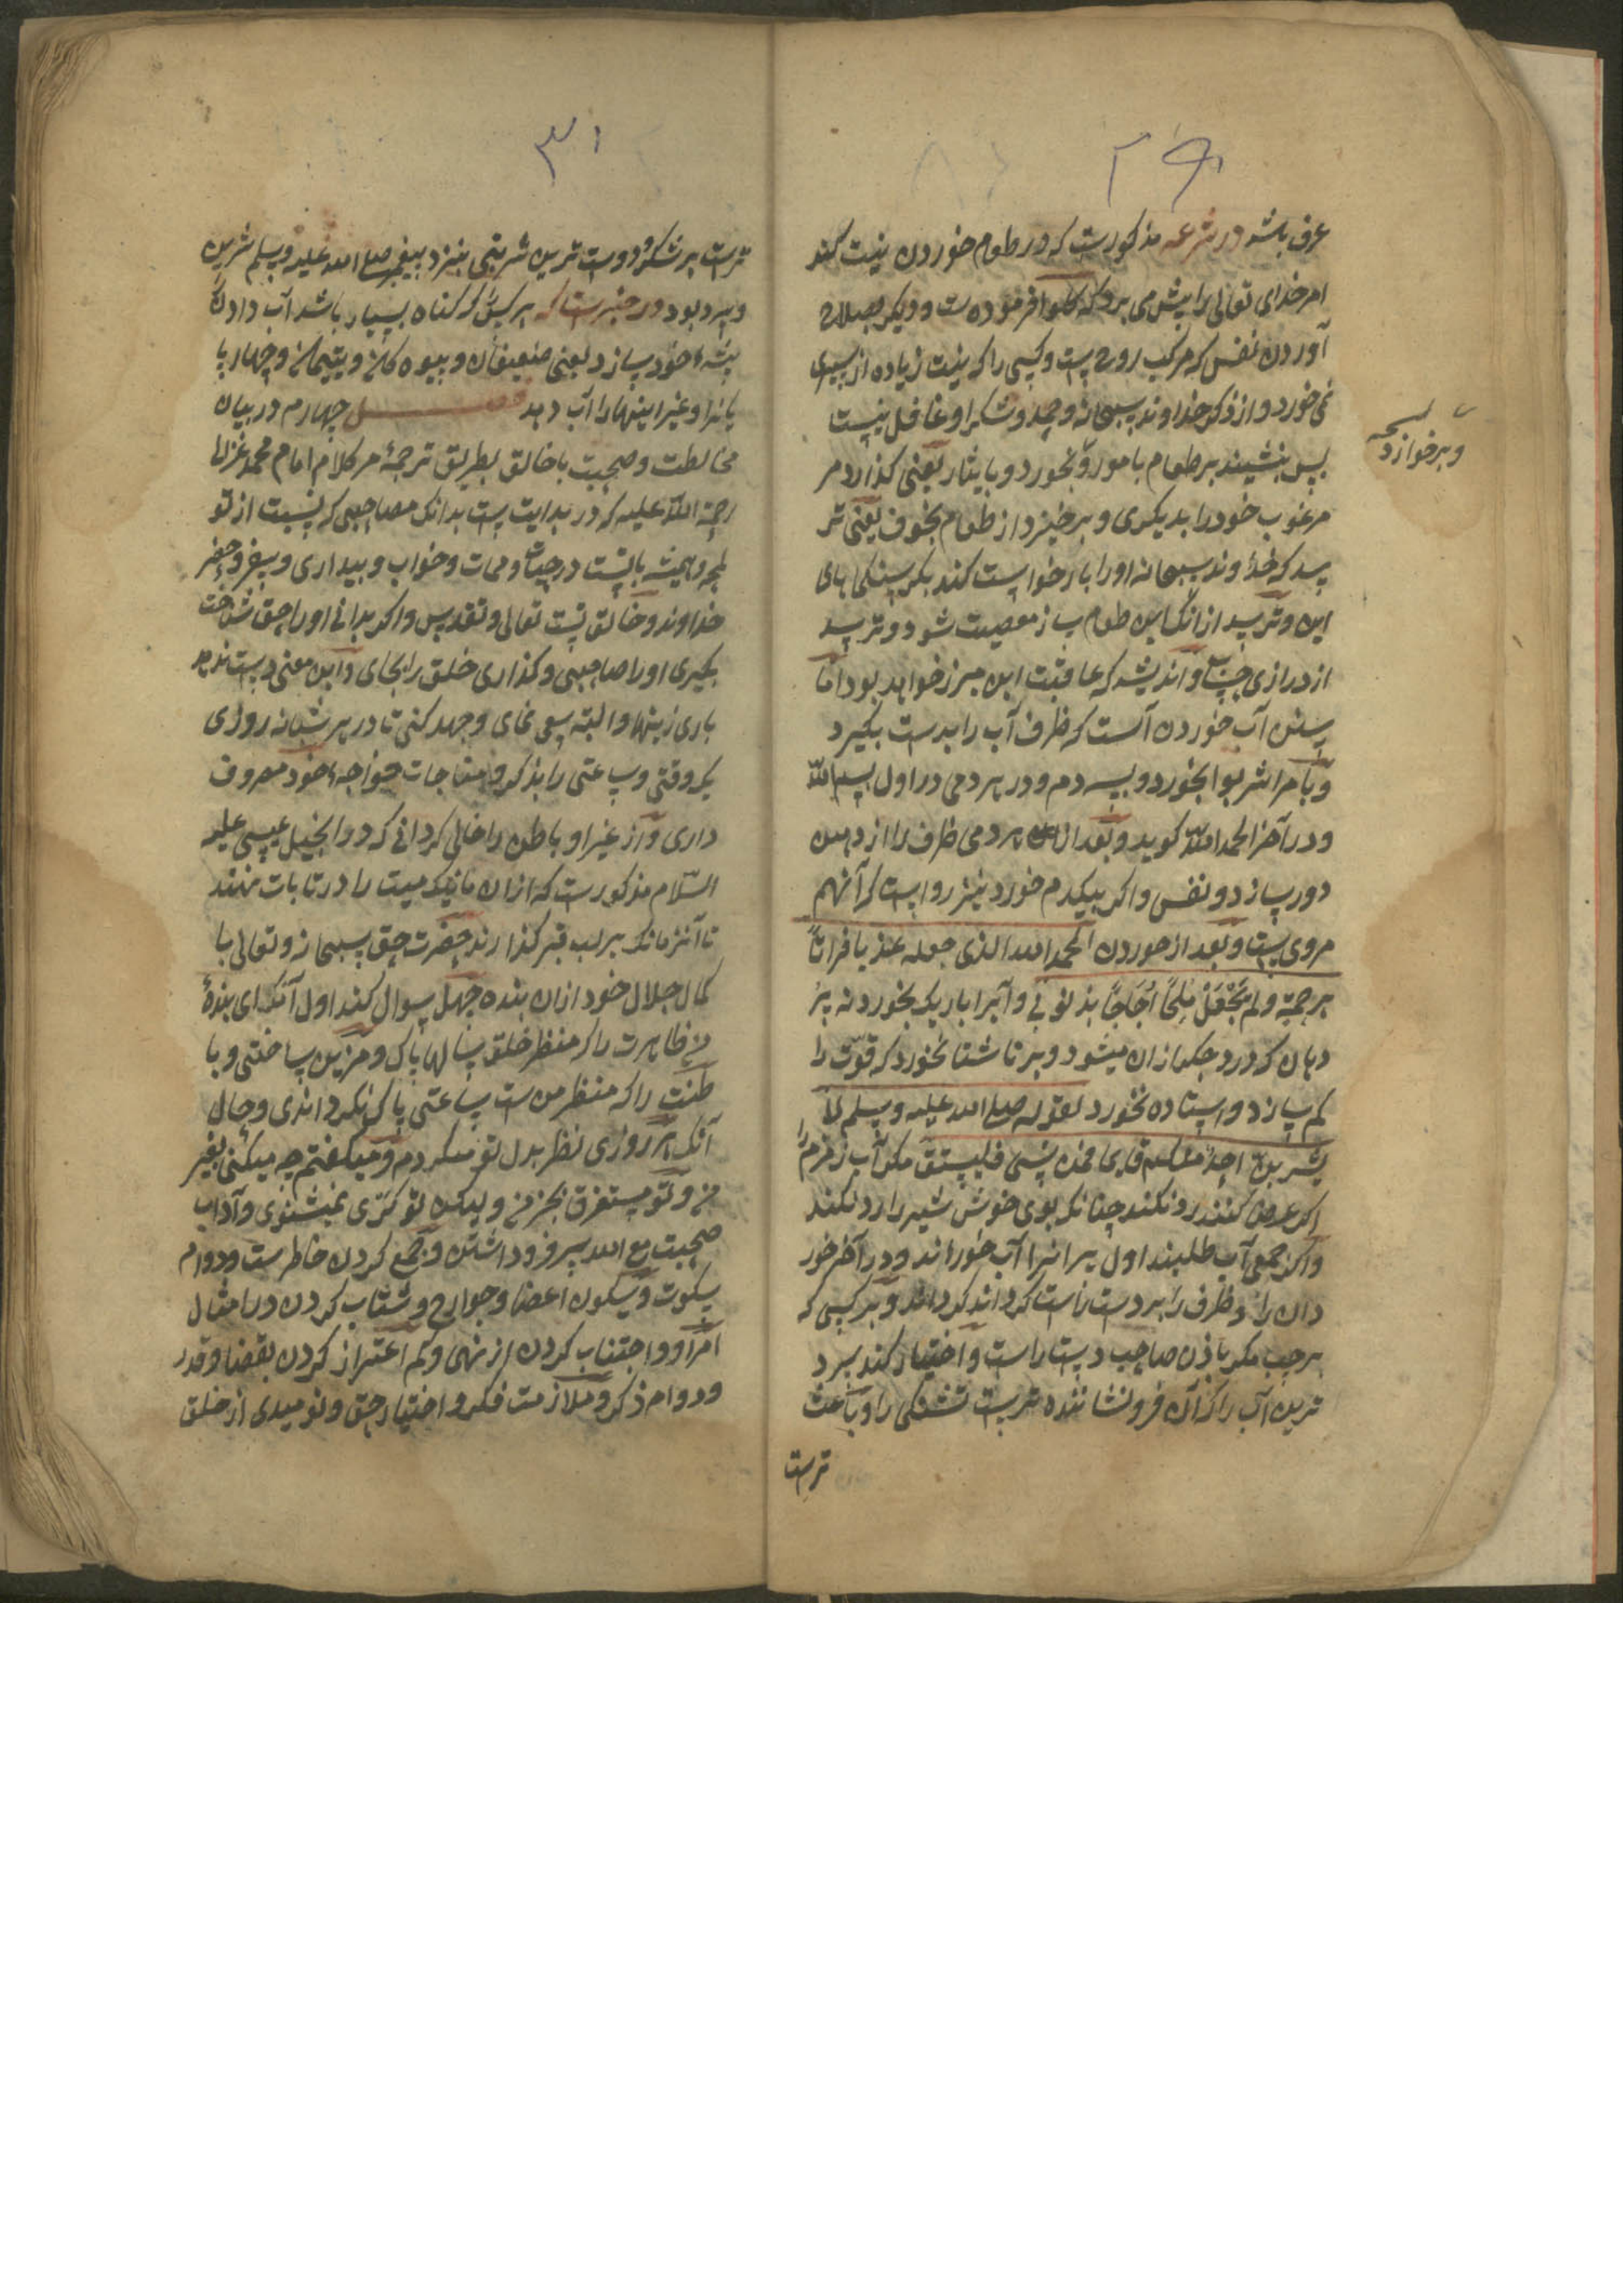 ۲۹
عرف باشد در شرعه مذکورست که در طعام خوردن نیت کند
امر خدای تعالی را پیش می برد که کلوا فرموده ست و دیگر بصلاح
آوردن نفس که مرکب روح ست و کسی را که نیت زیاده از سیری
نمی خورد و از ذکر خداوند سبحانه و حمد و شکر او غافل نیست
پس بنشیند بر طعام با مور و بخورد و بایثار یعنی گذارد مر
مرغوب خود را بدیگری و برخیزد از طعام بخوف یعنی تر
سد که خداوند سبحانه او را بازخواست کند بگرسنگی های
این و ترسد از آنک این طعام ساز معصیت شود و ترسد
از درازی حساب و اندیشه که عاقبت این مبرز خواهد بود اما
سنن آب خوردن آنست که ظرف آب را بدست بگیرد
و بامر اشربوا بخورد و بسه دم و در هر دمی در اول بسم الله
و در آخر الحمد الله گوید و بعد از هر دمی ظرف را از دهن
دور سازد و نفس و اگر بیکدم خورد نیز رواست که آنهم
مروی ست و بعد از خوردن الحمد الله الذی جعله عذبا فراتاً
برحمته و لم یجعله ملحاً اجاجاً بذنوبی و آب را باریک بخورد نه پر
دهان که درد جگر ازان میشود و بر ناشتا نخورد که قوت را
کم سازد و استاده نخورد لقوله صلی الله علیه و سلم لا
یشربن احدٌ منکم قایما فمن نسی فلیستق مگر آب زمزم را
اگر عرض کنند رد نکند چنانکه بوی خوش شیر را رد نکند
و اگر جمعی آب طلبند اول پیرانرا آب خوراند و در آخر خور
دان را و ظرف را بر دست راست گرداند و بر کسی که
بر چپ مگر باذن صاحب دست راست و اختیار کند سرد
ترین آب را که آن فرونشاننده ترست تشنگی را و باعث
ترست
نسخه
و برخوازد
۳۱
ترست بر شکر و دوست ترین شربتی بنزد پیغمبر صلی الله علیه و سلم شرین
و سرد بود در خبرست که هر کس که گناه بسیار باشد آب دادن را
پیشهٔ خود سازد یعنی ضعیفان و بیوه گان و یتیمان و چهارپا
یانرا و غیر اینها را آب دهد فصل چهارم در بیان
مخالطت و صحبت با خالق بطریق ترجمهٔ مر کلام امام محمد غزالی
رحمة الله علیه که در بدایت ست بدانک مصاحبی که نیست از تو
لمحه و همیشه باتست در حیات و ممات و خواب و بیداری و سفر و حضر
خداوند و خالق تست تعالی و تقدس و اگر بدانی او را حق شناخت
بگیری او را صاحبی و گذاری خلق را بجای و این معنی دست ندهد
باری زینهار و البته سعی نمای و جهد کنی تا در هر شبانه روزی
یک وقتی و ساعتی را بذکر و مناجات خواجهٔ خود مصروف
داری و از غیر او باطن را خالی گردانی که در انجیل عیسی علیه
السلام مذکورست که ازان مانیکه میت را در تابات نهند
تا آنزمانکه بر لب قبر گذارند حضرت حق سبحانه و تعالی با
کمال جلال خود ازان بنده چهل سوال کند اول آنک ای بندهٔ
من ظاهرت را که منظر خلق سالها پاک و مزین ساختی و با
طنت را که منظر من ست ساعتی پاک نگرداندی و حال
آنک هر روزی نظر بدل تو میکردم و میگفتم چه میکنی بغیر
من و تو مستغرق بخیر من و لیکن تو کری نمیشنوی و آداب
صحبت مع الله سر فرود داشتن و جمع کردن خاطرست و دوام
سکوت و سکون اعضا و جوارح و شتاب کردن در امتثال
امر او و اجتناب کردن از نهی و کم اعتراز کردن بقضا و قدر
و دوام ذکر و ملازمت فکر و اختیار حق و نومیدی از خلق